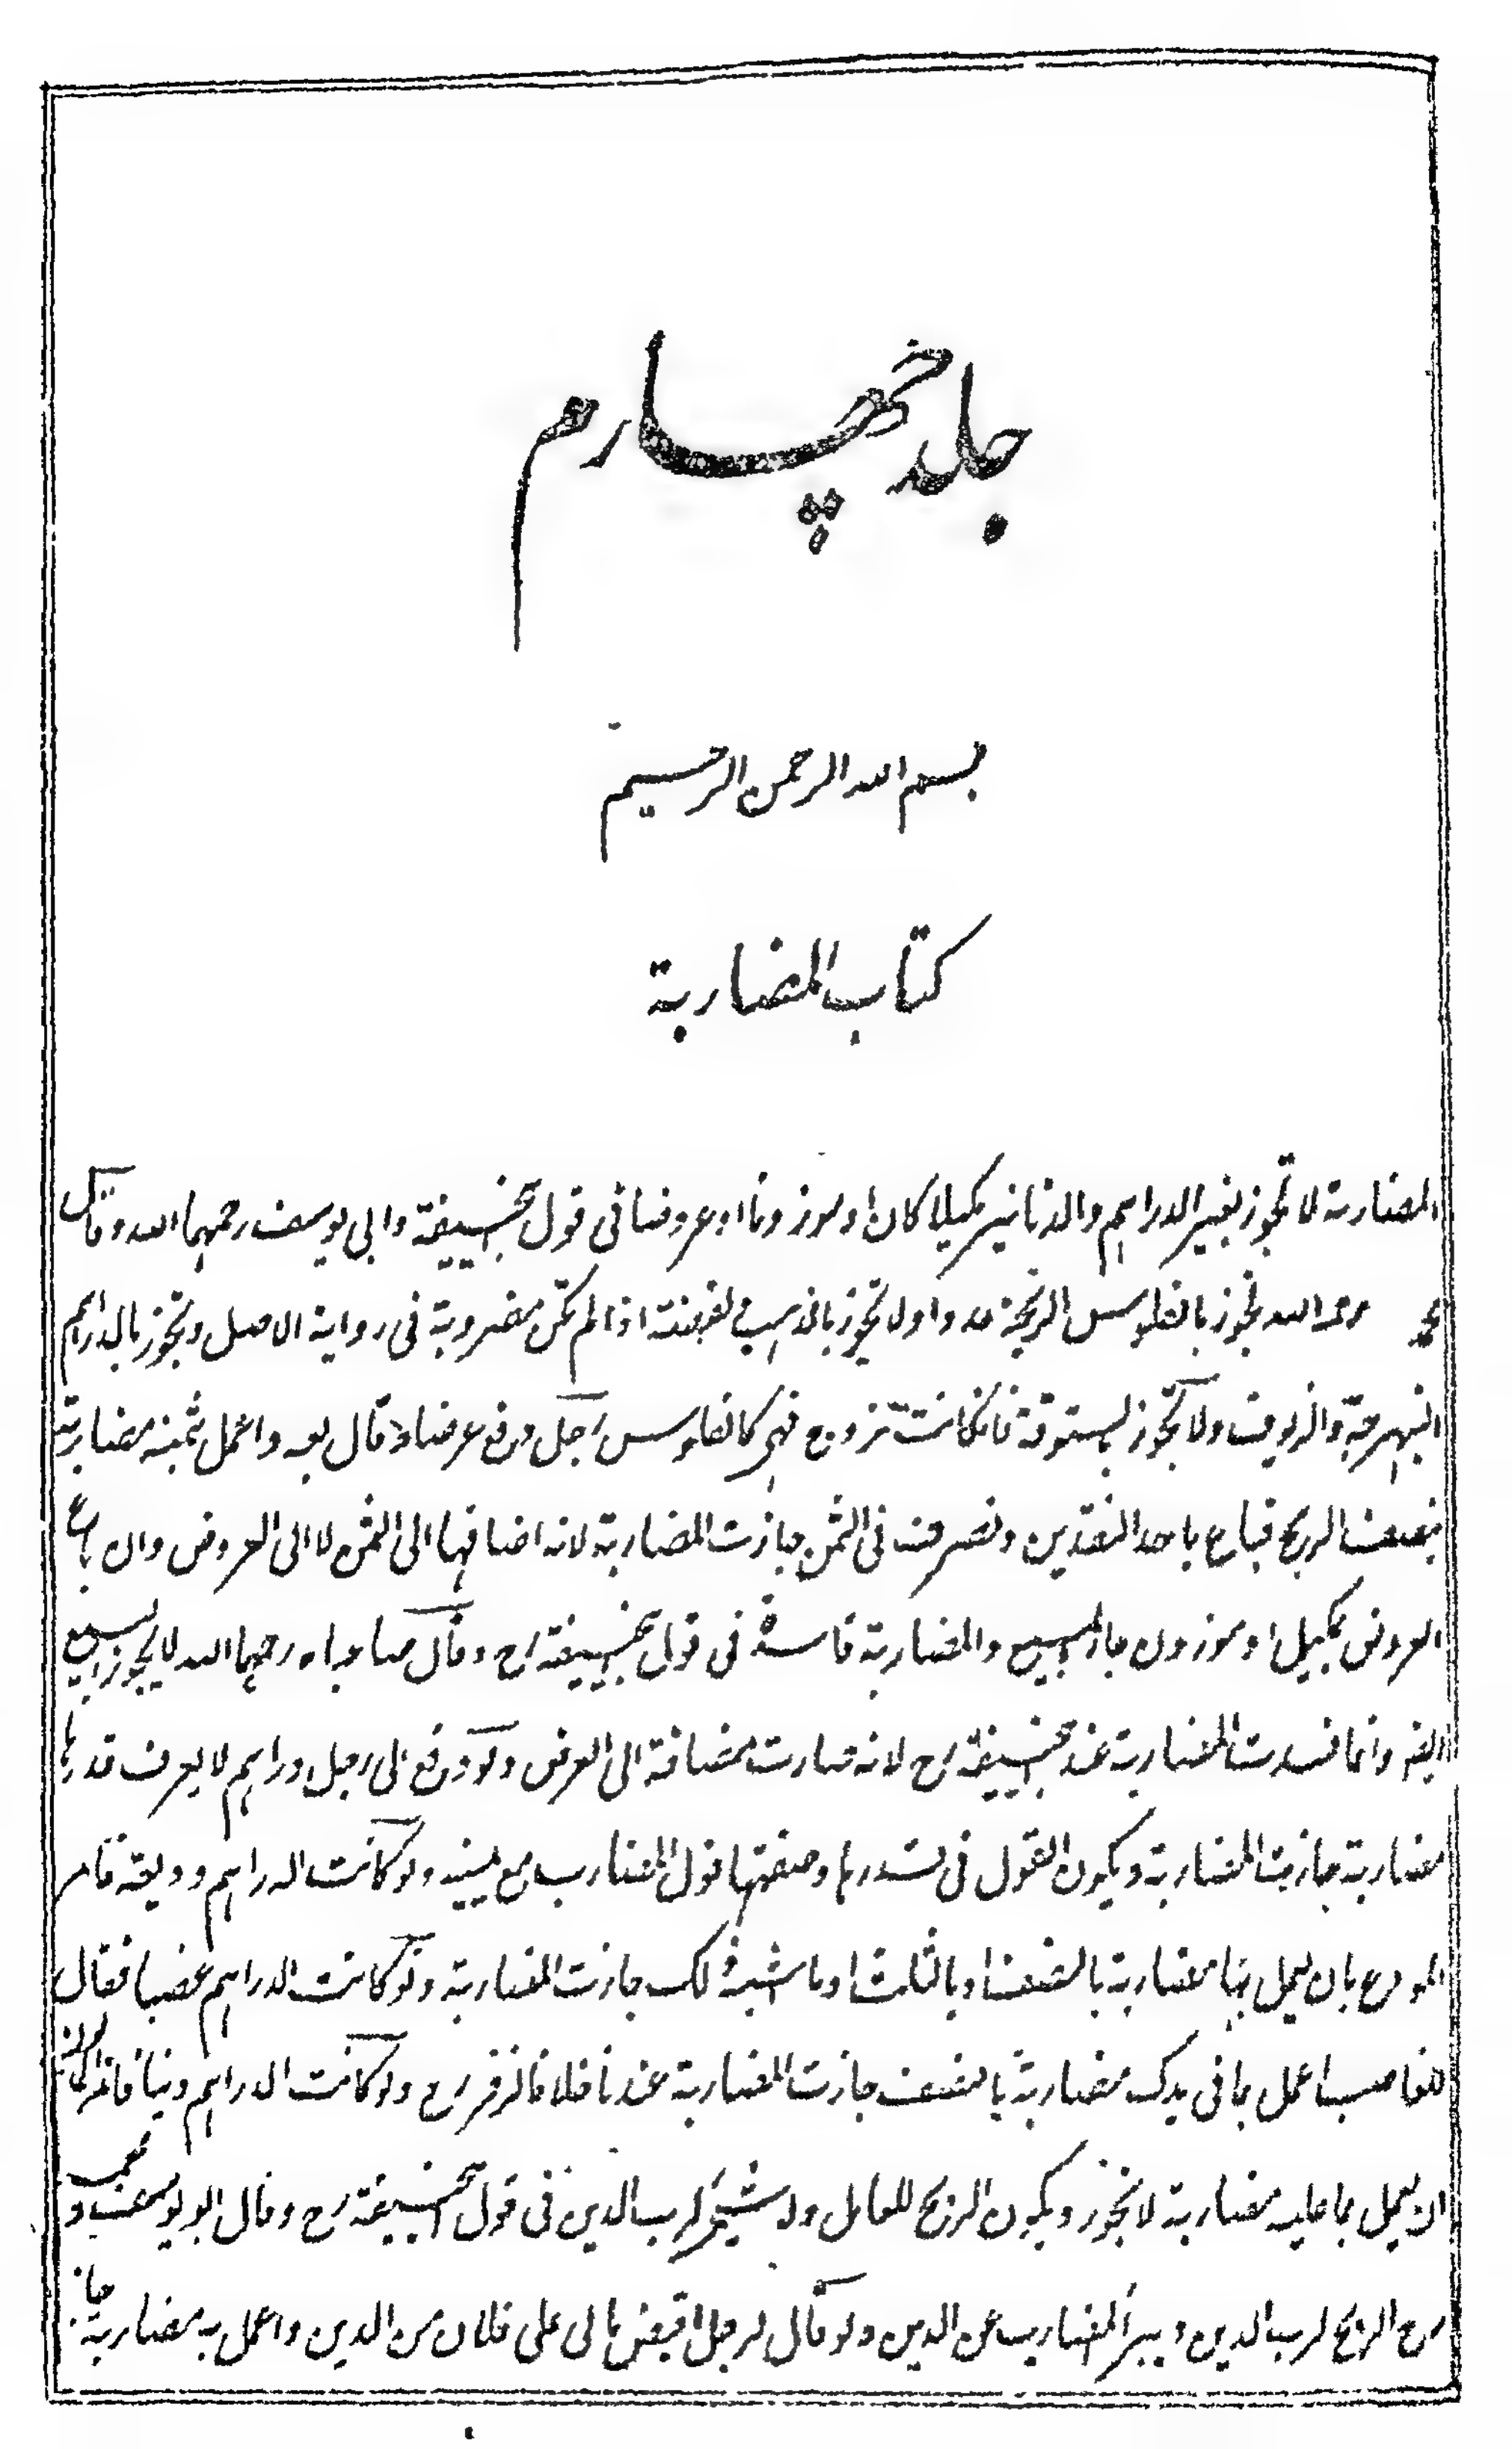 جلد چهارم
بسم الله الرحمن الرحیم
کتاب المضاربة
المضاربة لا تجوز بغیر الدراهم والدنانیر مکیلا کان او موزونا او عروضا فی قول ابیحنیفة وابی یوسف رحمهما الله وقال
محمد رحمه الله تجوز بالفلوس الرائجة ولا تجوز بالذهب والفضة اذا لم تکن مضروبة فی روایة الاصل وتجوز بالدراهم
النبهرجة والزیوف ولا تجوز بالستوقة فان کانت تروج فهی کالفلوس رجل دفع عرضا وقال بعه واعمل بثمنه مضاربة
بنصف الربح فباع باحد النقدین وتصرف فی الثمن جازت المضاربة لانه اضافها الی الثمن لا الی العروض وان باع
العروض بمکیل او موزون جاز البیع والمضاربة فاسدة فی قول ابیحنیفة رح وقال صاحباه رحمهما الله لا یجوز البیع
ایضا وانما فسدت المضاربة عند ابیحنیفة رح لانه صارت مضافة الی العرض ولو دفع الی رجل دراهم لا یعرف قدرها
مضاربة جازت المضاربة ویکون القول فی قدرها وصفتها قول المضارب مع یمینه ولو کانت الدراهم ودیعة فامر
المودع بان یعمل بها مضاربة بالنصف او بالثلث او ما اشبه ذلک جازت المضاربة ولو کانت الدراهم غصبا فقال
للغاصب اعمل بما فی یدک مضاربة بالنصف جازت المضاربة عندنا خلافا لزفر رح ولو کانت الدراهم دینا فامر المدیون
ان یعمل بما علیه مضاربة لا تجوز ویکون الربح للعامل ولا شیء لرب الدین فی قول ابیحنیفة رح وقال ابو یوسف و محمد
رح الربح لرب الدین ویبرأ المضارب عن الدین ولو قال لرجل اقبض مالی علی فلان من الدین واعمل به مضاربة جاز